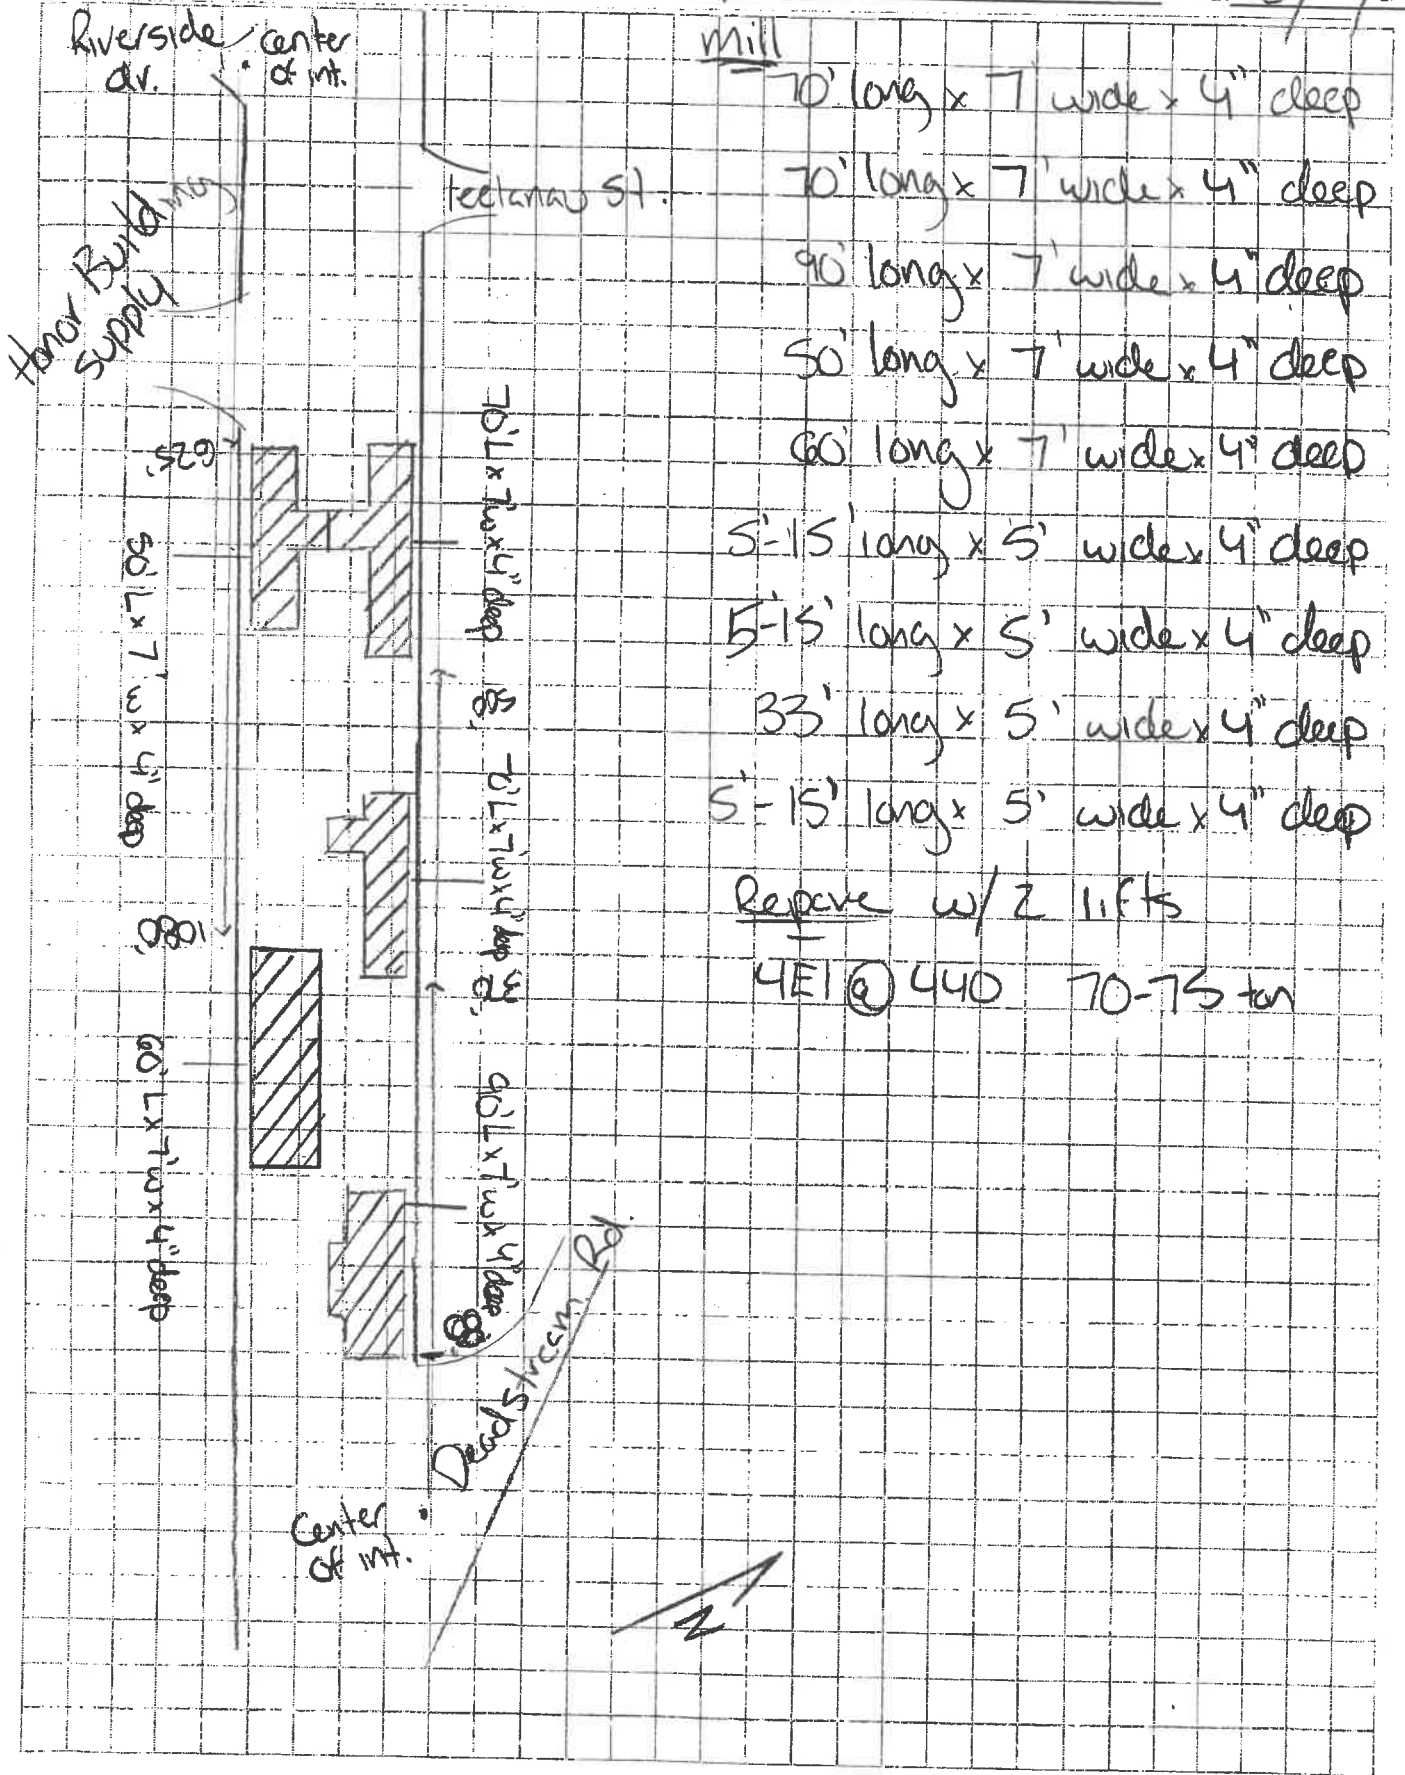 Riverside
dr.
center
of int.
Honor Building
Supply
St.
625'
50' L x 7' w x 4" deep
1080'
60' L x 7' w x 4" deep
70' L x 7' w x 4" deep
70' L x 7' w x 4" deep
90' L x 7' w x 4" deep
88'
Deadstream Rd.
Center
of int.
N
Mill
70' long x 7' wide x 4" deep
70' long x 7' wide x 4" deep
90' long x 7' wide x 4" deep
50' long x 7' wide x 4" deep
60' long x 7' wide x 4" deep
5'-15' long x 5' wide x 4" deep
5'-15' long x 5' wide x 4" deep
33' long x 5' wide x 4" deep
5'-15' long x 5' wide x 4" deep
Repave w/ 2 lifts
4E1 @ 440 70-75 ton